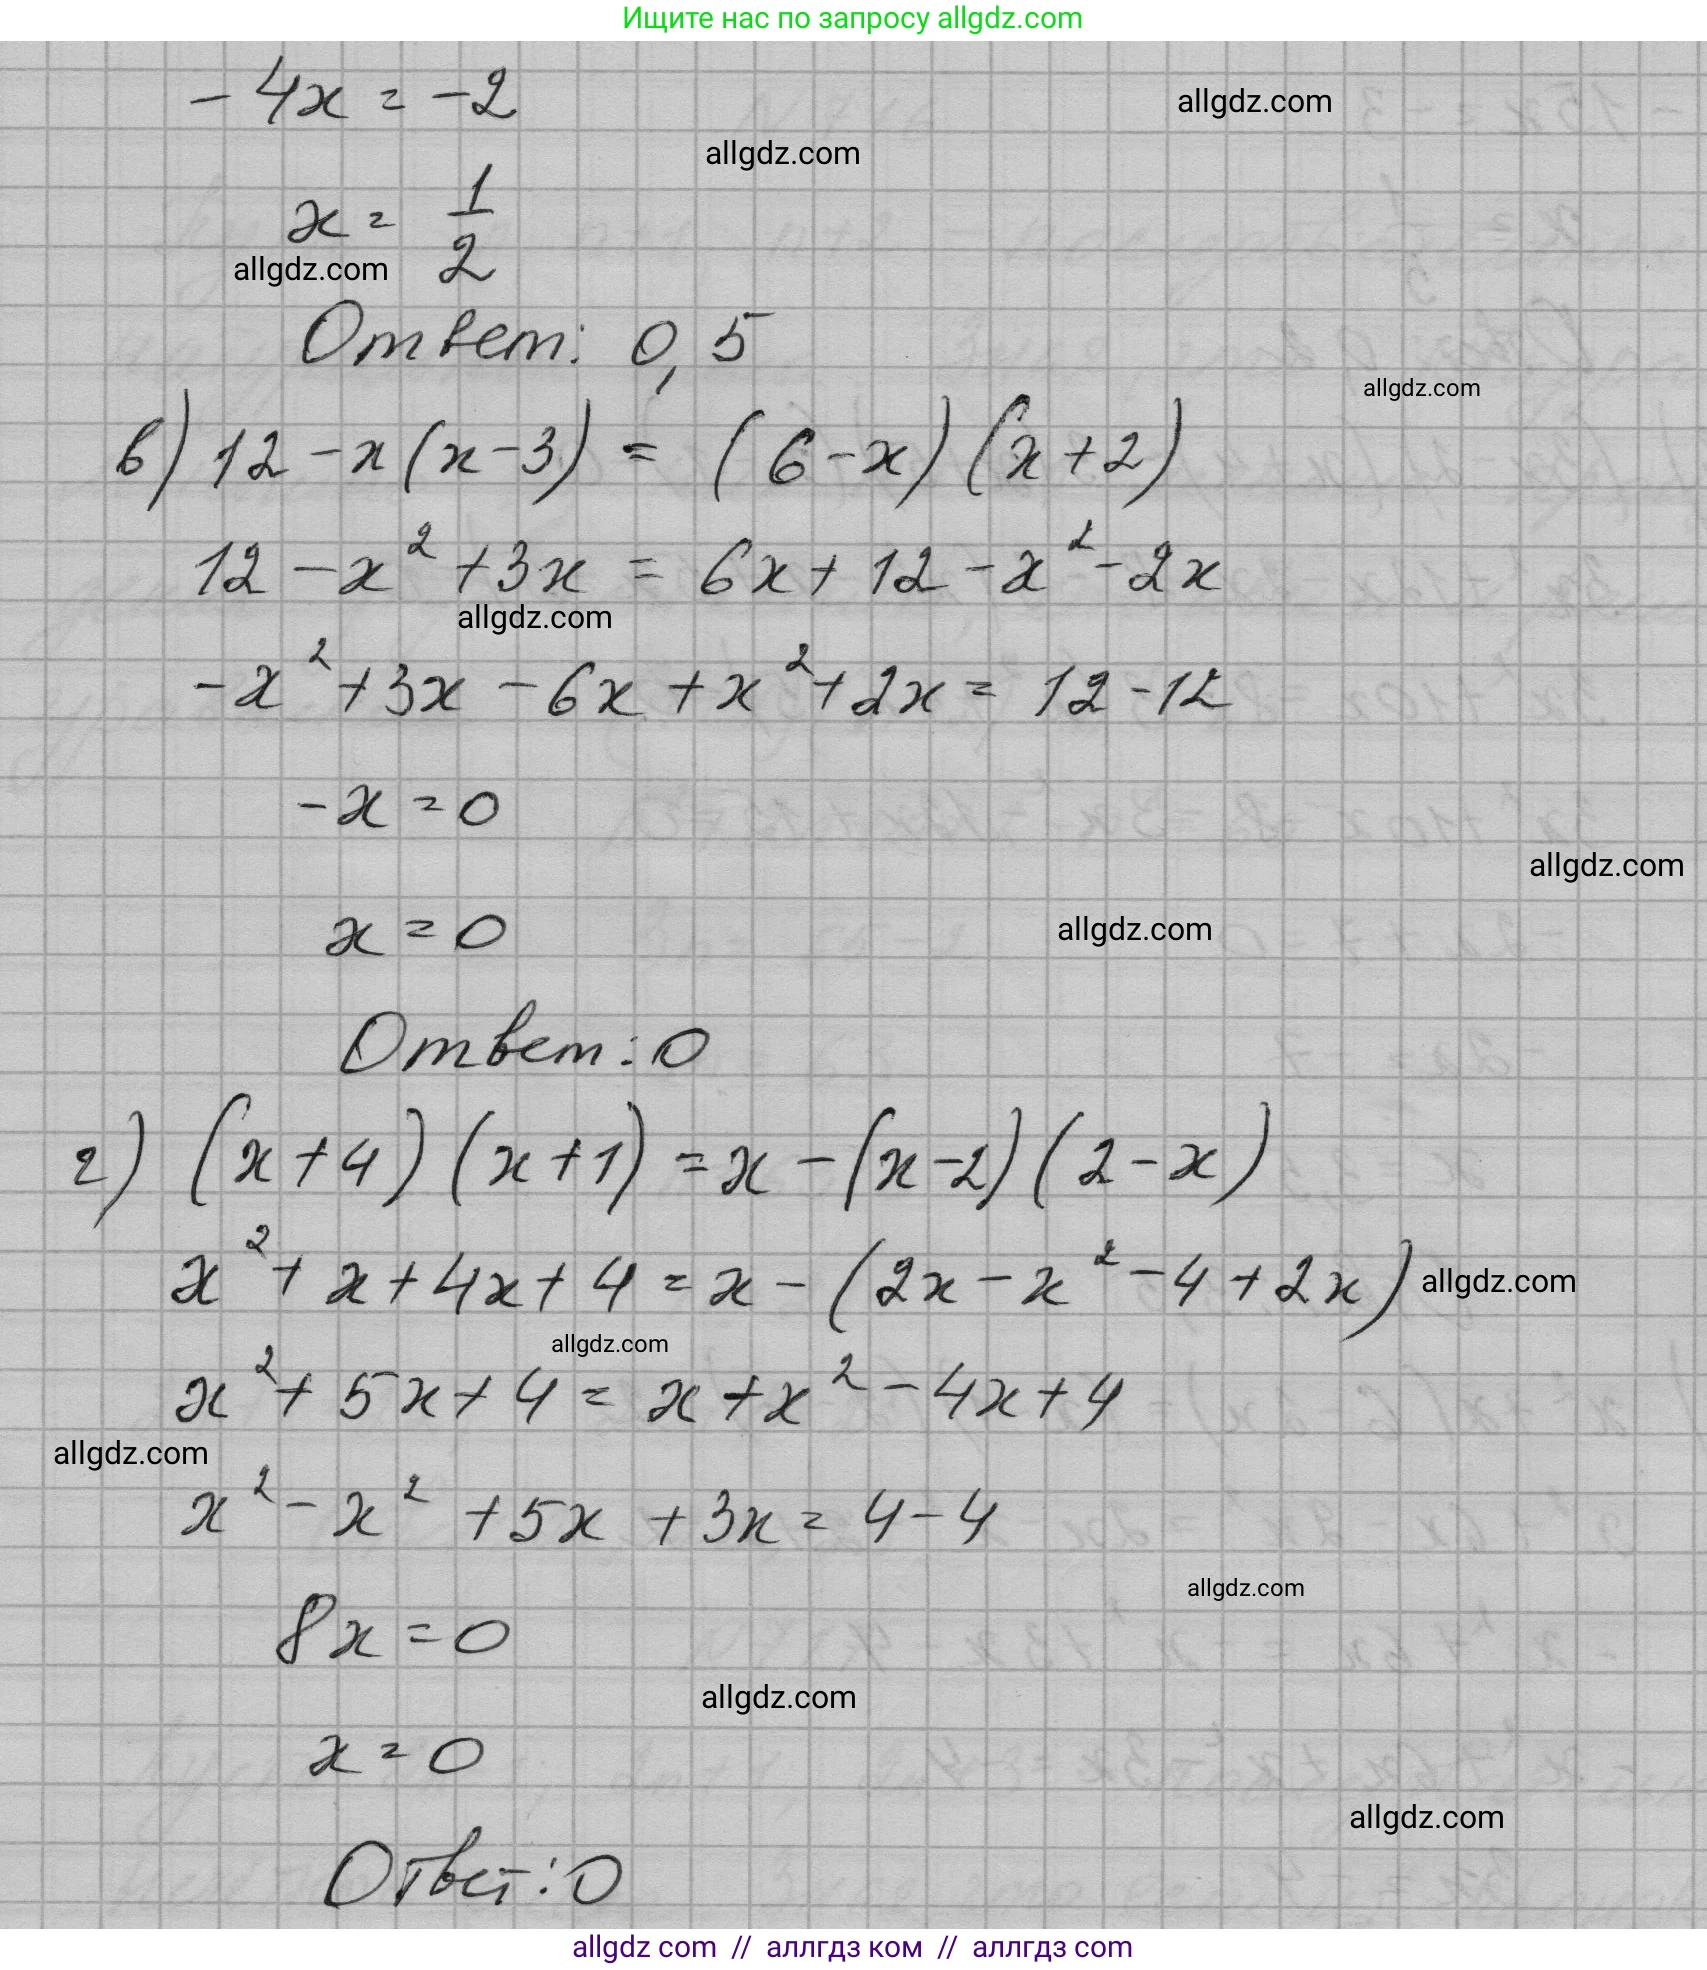 Ищите нас по запросу allgdz.com
-4x = -2
allgdz.com
allgdz.com
x = 1/2
allgdz.com
Ответ: 0,5
allgdz.com
в) 12 - x(x-3) = (6-x)(x+2)
12 - x² + 3x = 6x + 12 - x² - 2x
allgdz.com
-x² + 3x - 6x + x² + 2x = 12 - 12
-x = 0
allgdz.com
x = 0
allgdz.com
Ответ: 0
г) (x+4)(x+1) = x - (x-2)(2-x)
x² + x + 4x + 4 = x - (2x - x² - 4 + 2x)
allgdz.com
allgdz.com
x² + 5x + 4 = x + x² - 4x + 4
allgdz.com
x² - x² + 5x + 3x = 4 - 4
allgdz.com
8x = 0
allgdz.com
x = 0
allgdz.com
Ответ: 0
allgdz com // аллгдз ком // аллгдз com